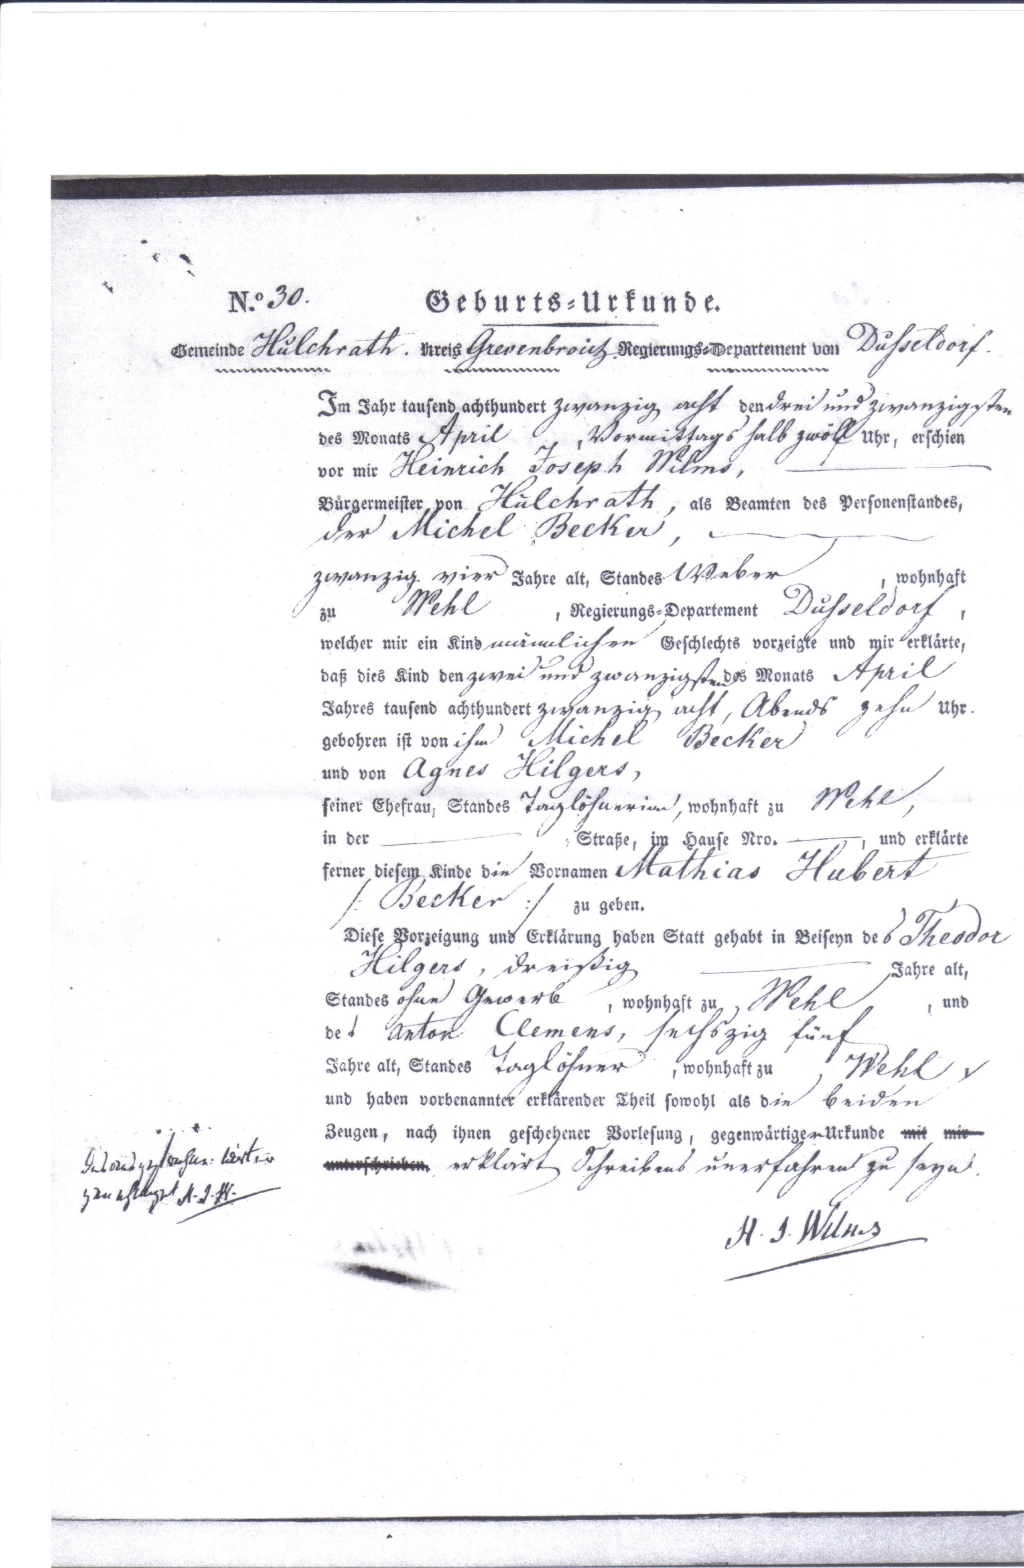 N.º 30. Geburts-Urkunde.
Gemeinde Hülchrath. Kreis Grevenbroich. Regierungs-Departement von Düsseldorf.
Im Jahr tausend achthundert zwanzig acht den drei und zwanzigsten
des Monats April, Vormittags halb zwölf Uhr, erschien
vor mir Heinrich Joseph Wilms,
Bürgermeister von Hülchrath, als Beamten des Personenstandes,
der Michel Becker,
zwanzig vier Jahre alt, Standes Weber, wohnhaft
zu Wehl, Regierungs-Departement Düsseldorf,
welcher mir ein Kind männlichen Geschlechts vorzeigte und mir erklärte,
daß dies Kind den zwei und zwanzigsten des Monats April
Jahres tausend achthundert zwanzig acht, Abends zehn Uhr
gebohren ist von ihm Michel Becker
und von Agnes Hilgers,
seiner Ehefrau, Standes Taglöhnerinn, wohnhaft zu Wehl,
in der Straße, im Hause Nro. , und erklärte
ferner diesem Kinde die Vornamen Mathias Hubert
/: Becker :/ zu geben.
Diese Vorzeigung und Erklärung haben Statt gehabt in Beiseyn des Theodor
Hilgers, dreißig Jahre alt,
Standes ohne Gewerb, wohnhaft zu Wehl, und
des Anton Clemens, sechszig fünf
Jahre alt, Standes Taglöhner, wohnhaft zu Wehl,
und haben vorbenannter erklärender Theil sowohl als die beiden
Zeugen, nach ihnen geschehener Vorlesung, gegenwärtiger Urkunde mit mir
unterschrieben erklärt Schreibens unerfahren zu seyn.
H. J. Wilms
H. J. W.